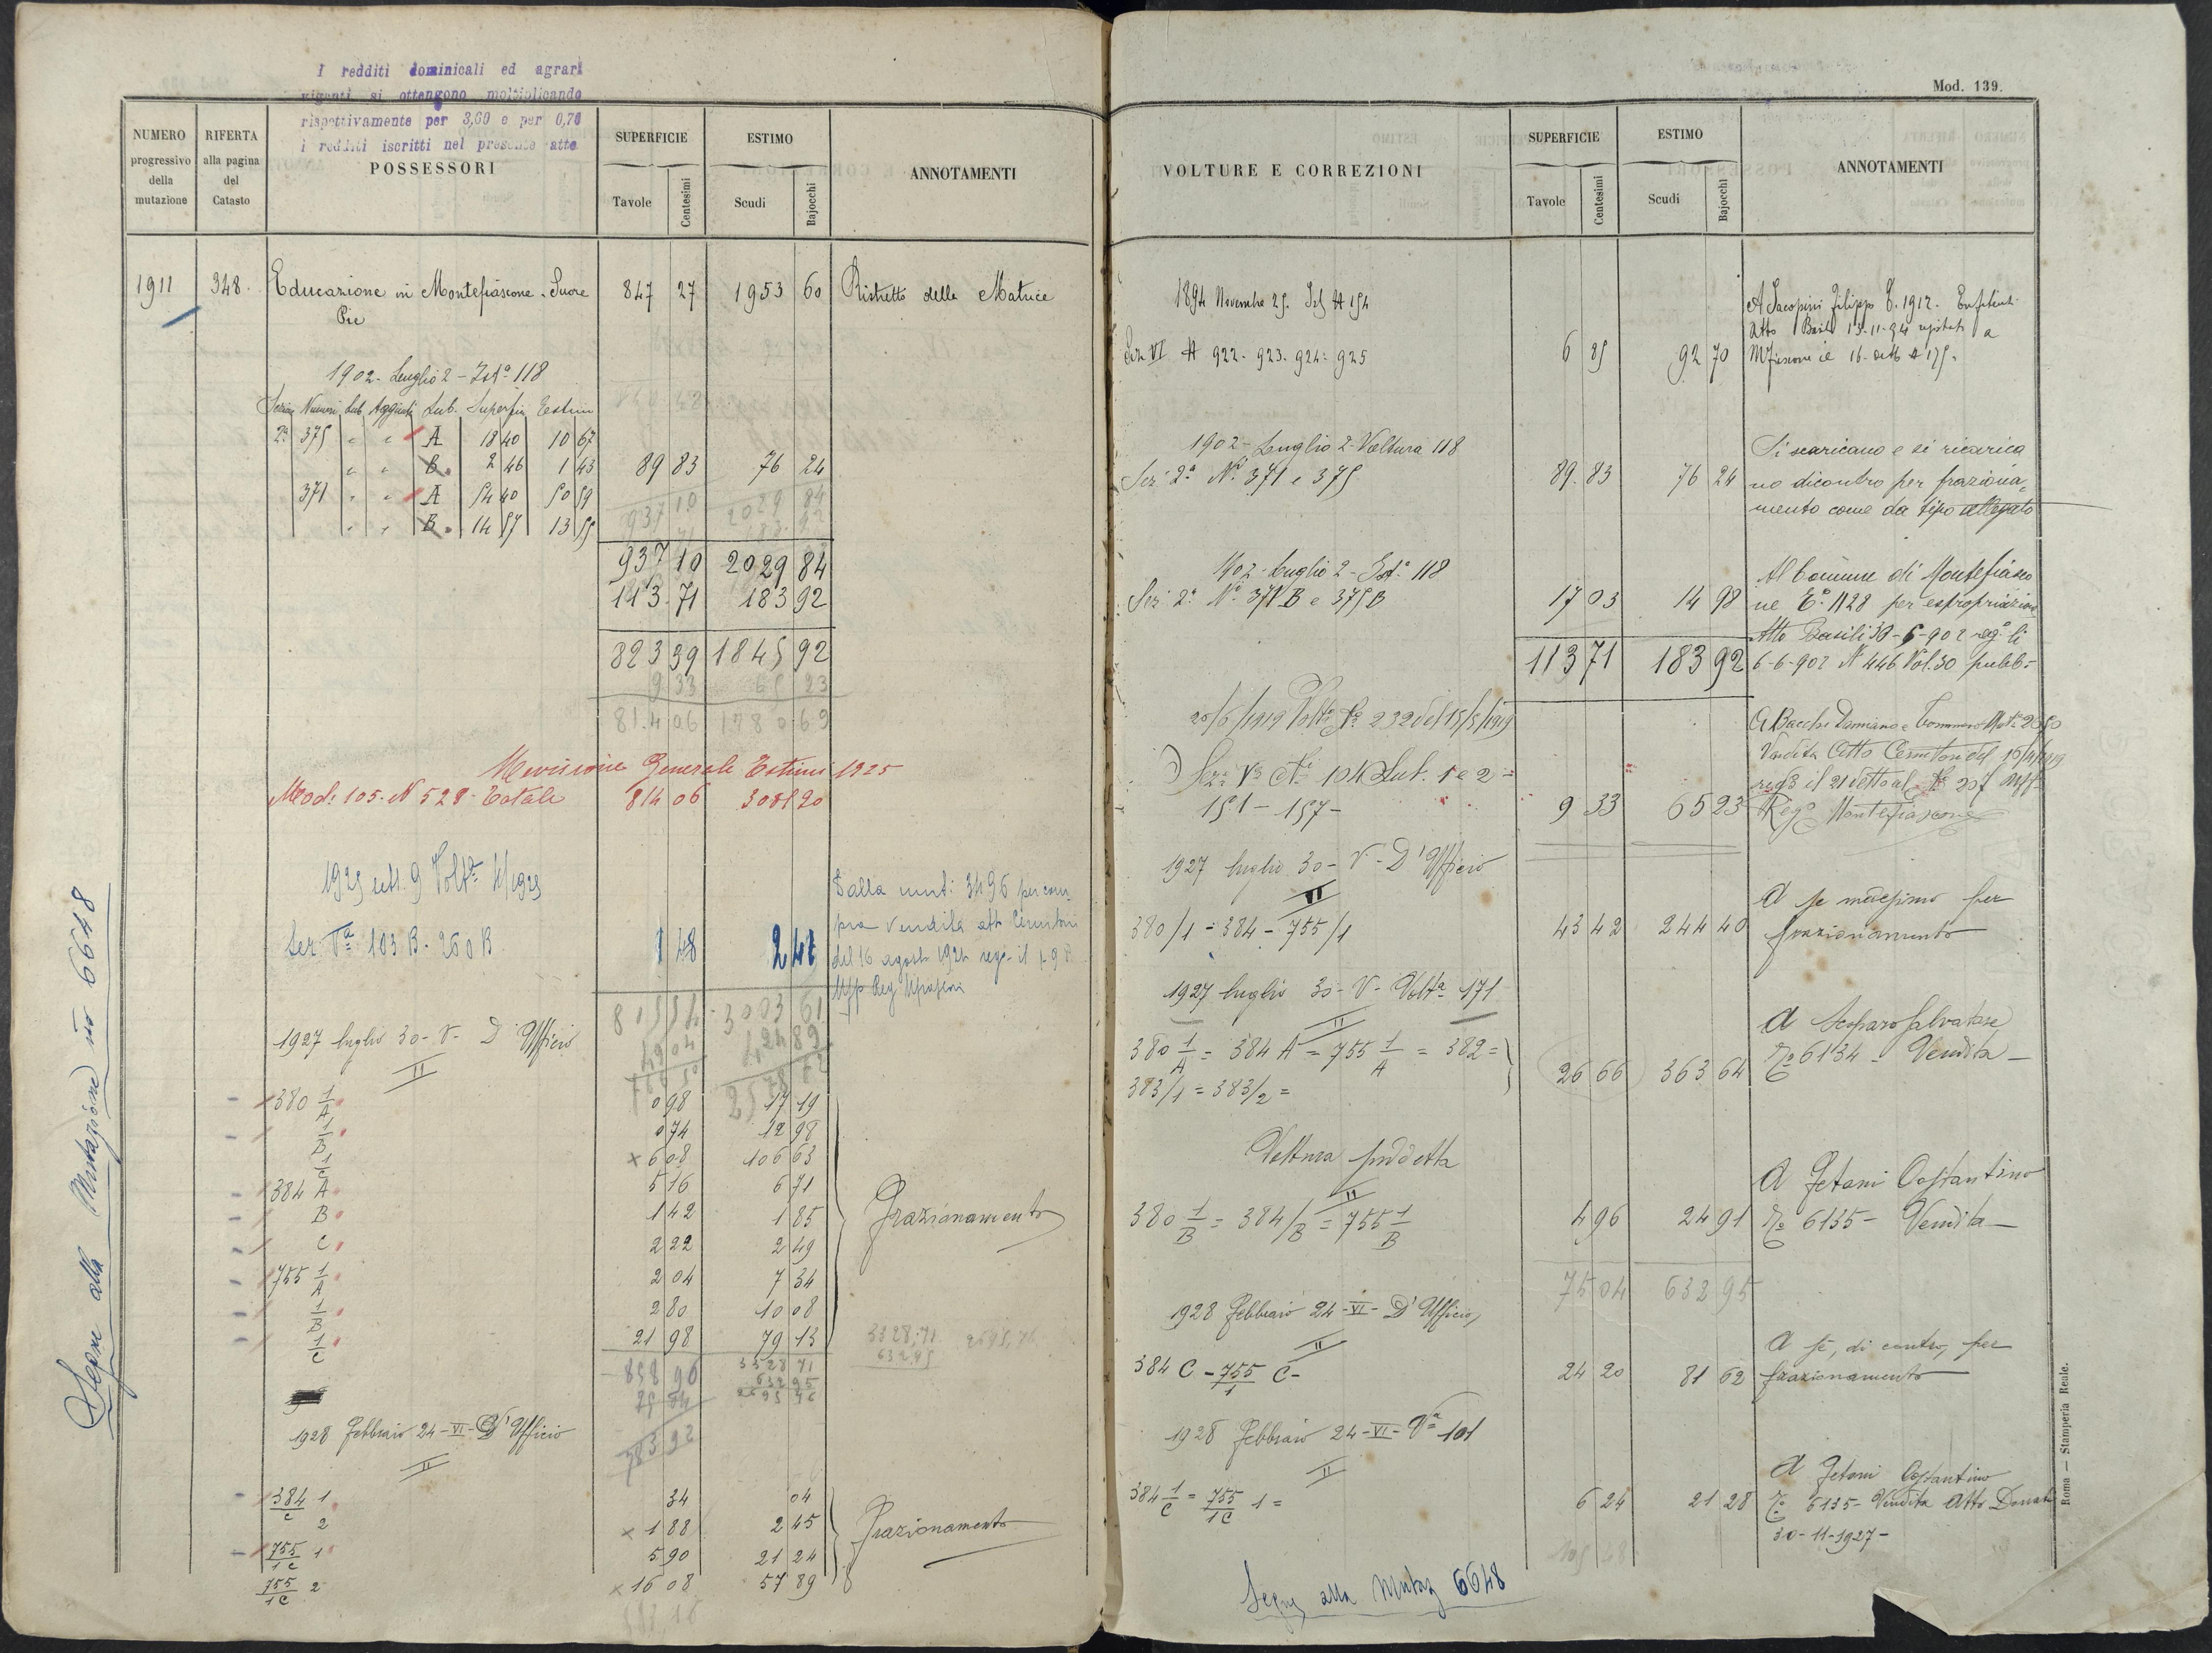 I redditi dominicali ed agrari
vigenti si ottengono moltiplicando
rispettivamente per 3,60 e per 0,70
i redditi iscritti nel presente atto
NUMERO progressivo della mutazione
RIFERTA alla pagina del Catasto
POSSESSORI
SUPERFICIE
Tavole Centesimi
ESTIMO
Scudi Bajocchi
ANNOTAMENTI
1911 348 Educazione in Montefiascone - Suore 847 27 1953 60 Ristretto della Matrice
Pie
1902 - Luglio 2 - Ist.a 118
Sezione Numeri Sub Aggiunti Sub. Superfie Estimi
2a 375 " " A 18 40 10 67
" " B 2 46 1 43 89 83 76 24
371 " " A 54 40 50 59
" " B 14 57 13 55
937 10 2029 84
937 10 2029 84
113.71 183 92
823 39 1845 92
9 33 65 23
814 06 1780 69
Revisione Generale Estimi 1925
Mod: 105. N 528. Totale 814 06 3001 20
1925 sett. 9 Volta 4/1925
Dalla mut: 3496 per com-
pra vendita att Cernitori
Sez Va 103 B - 260 B 1 48 2 41
del 16 agosto 1924
815 54 3003 61
1927 luglio 30 - V - D'Ufficio
II
380 1/A 0 98 17 19
1/B 0 74 12 98
1/C × 6 08 106 63
384 A 5 16 6 71
B 1 42 1 85 Frazionamento
C 2 22 2 49
755 1/A 2 04 7 34
1/B 2 80 10 08
1/C 21 98 79 13
858 96 3328 71
632 95
75 04 2695 76
783 92
1928 Febbraio 24 - VI - D'Ufficio
II
384/C 1 34 04
2 × 1 88 2 45 Frazionamento
755/1C 1 5 90 21 24
755/1C 2 × 16 08 57 89
Segue alla Mutazione no 6648
Mod. 139.
VOLTURE E CORREZIONI
SUPERFICIE
Tavole Centesimi
ESTIMO
Scudi Bajocchi
ANNOTAMENTI
1894 Novembre 25.
A Jacopini Filippo
Sez. VI N 922 - 923 - 924 = 925 6 85 92 70
1902 - Luglio 2 - Voltura 118
Si scaricano e si ricarica
Sez. 2a Ni 371 e 375 89.83 76 24 no dicontro per fraziona=
mento come da tipo allegato
1902 - Luglio 2 - Ist.a 118
Al Comune di Montefiasco
Sez. 2a Ni 371B e 375B 17 03 14 98 ne 1128 per espropriazione
Atto Basili 30 - 5 - 902 reg.o li
113 71 183 92 6-6-902 N 446 Vol. 30 pubb.=
20/6/1919 Volta No 232 del 15/5/1919
A Bacchi Damiano e Tommaso
Vendita Atto Cernitori del
Sez.a Va 104 Sub. 1 e 2 =
151 - 157 - 9 33 65 23 Rego Montefiascone
1927 luglio 30 - V - D'Ufficio
II
A se medesimo per
380/1 = 384 - 755/1 43 42 244 40 frazionamento
1927 luglio 30 - V - Volta 171
II
380 1/A = 384 A = 755 1/A = 382 =
383/1 = 383/2 =
26 66 363 64
Salvatore
6134 - Vendita -
Voltura suddetta
II
A Fetoni Costantino
380 1/B = 384/B = 755 1/B 4 96 24 91 6135 - Vendita -
75 04 632 95
1928 Febbraio 24 - VI - D'Ufficio
II
A sé, di contro, per
384 C - 755/1 C - 24 20 81 62 frazionamento
1928 Febbraio 24 - VI - Va 101
II
A Fetoni Costantino
384 1/C = 755/1C 1 = 6 24 21 28 6135 - Vendita Atto Donati
30 - 11 - 1927 -
Segue alla Mutaz 6648
Roma — Stamperia Reale.